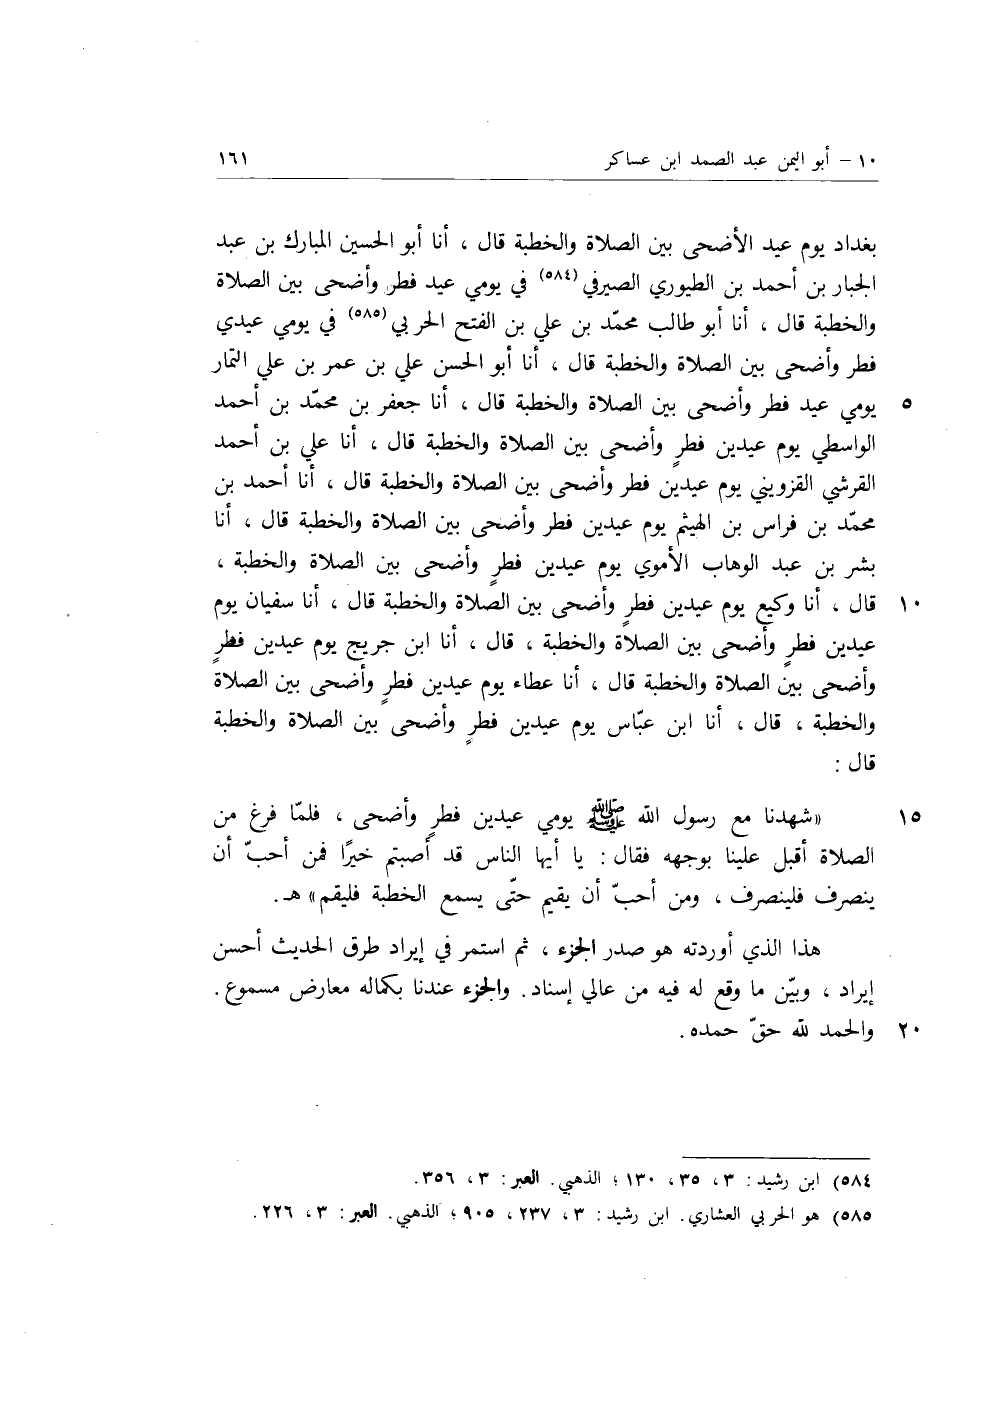 ١٠ – أبو اليمن عبد الصمد ابن عساكر ١٦١
بغداد يوم عيد الأضحى بين الصلاة والخطبة قال ، أنا أبو الحسين المبارك بن عبد
الجبار بن أحمد بن الطيوري الصيرفي (٥٨٤) في يومي عيد فطر وأضحى بين الصلاة
والخطبة قال ، أنا أبو طالب محمّد بن علي بن الفتح الحربي (٥٨٥) في يومي عيدي
فطر وأضحى بين الصلاة والخطبة قال ، أنا أبو الحسن علي بن عمر بن علي التمار
٥ يومي عيد فطر وأضحى بين الصلاة والخطبة قال ، أنا جعفر بن محمّد بن أحمد
الواسطي يوم عيدين فطرٍ وأضحى بين الصلاة والخطبة قال ، أنا علي بن أحمد
القرشي القزويني يوم عيدين فطر وأضحى بين الصلاة والخطبة قال ، أنا أحمد بن
محمّد بن فراس بن الهيثم يوم عيدين فطر وأضحى بين الصلاة والخطبة قال ، أنا
بشر بن عبد الوهاب الأموي يوم عيدين فطرٍ وأضحى بين الصلاة والخطبة ،
١٠ قال ، أنا وكيع يوم عيدين فطرٍ وأضحى بين الصلاة والخطبة قال ، أنا سفيان يوم
عيدين فطرٍ وأضحى بين الصلاة والخطبة ، قال ، أنا ابن جريج يوم عيدين فطرٍ
وأضحى بين الصلاة والخطبة قال ، أنا عطاء يوم عيدين فطرٍ وأضحى بين الصلاة
والخطبة ، قال ، أنا ابن عبّاس يوم عيدين فطرٍ وأضحى بين الصلاة والخطبة
قال :
١٥ «شهدنا مع رسول الله ﷺ يومي عيدين فطرٍ وأضحى ، فلمّا فرغ من
الصلاة أقبل علينا بوجهه فقال : يا أيها الناس قد أصبتم خيرًا فمن أحبّ أن
ينصرف فلينصرف ، ومن أحبّ أن يقيم حتّى يسمع الخطبة فليقم» هـ.
هذا الذي أوردته هو صدر الجزء ، ثم استمر في إيراد طرق الحديث أحسن
إيراد ، وبيّن ما وقع له فيه من عالي إسناد. والجزء عندنا بكماله معارض مسموع.
٢٠ والحمد لله حقّ حمده.
٥٨٤) ابن رشيد : ٣ ، ٣٥ ، ١٣٠ ؛ الذهبي. العبر : ٣ ، ٣٥٦.
٥٨٥) هو الحربي العشاري. ابن رشيد : ٣ ، ٢٣٧ ، ٩٠٥ ؛ الذهبي. العبر : ٣ ، ٢٢٦.